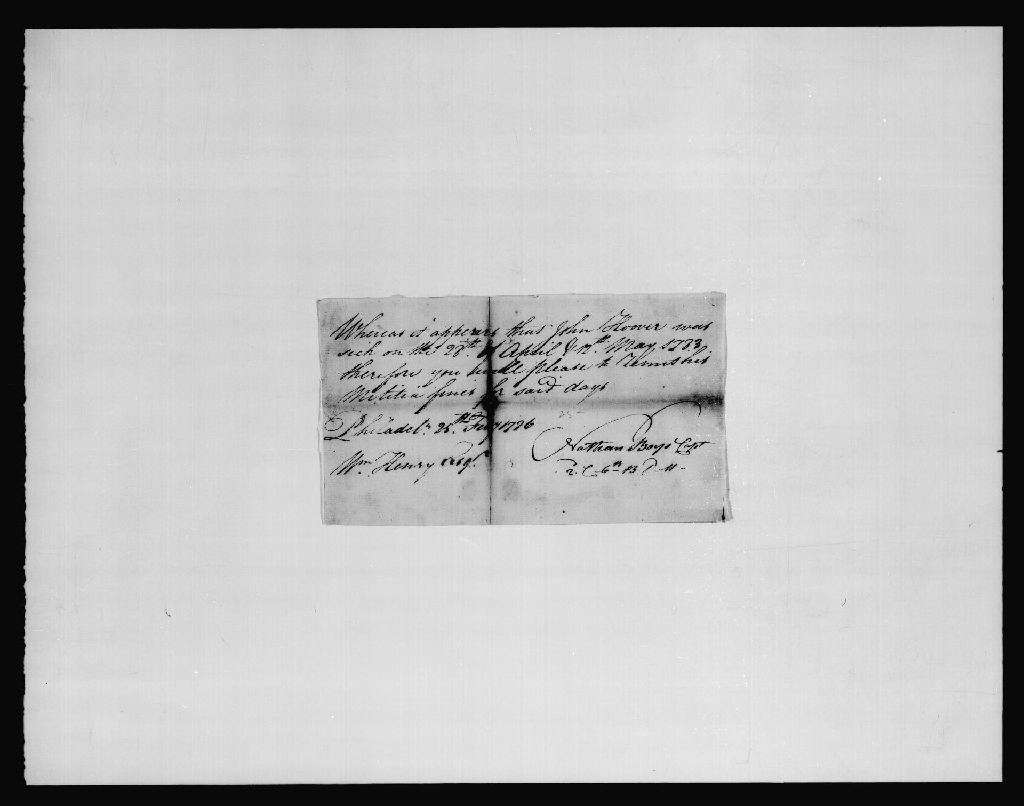 Whereas it appears that John Hower was
sick on the 28th. of April & 12th. May 1783
therefore you will please to Remit his
Militia fines for said days
Philadela. 25th Feby 1786
Nathan Boys Capt
Wm Henry Esqr.
2. C 6th B P M